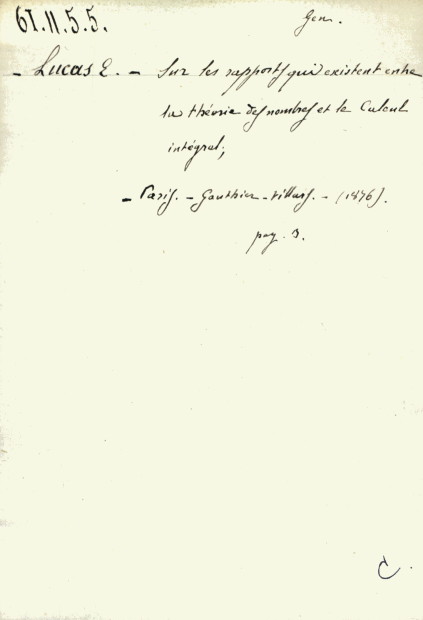 61.11.5.5.
Gen.
- Lucas E. - Sur les rapports qui existent entre
la théorie des nombres et le Calcul
intégral;
- Paris. - Gauthier-Villars. - (1876).
pag. 3.
C.